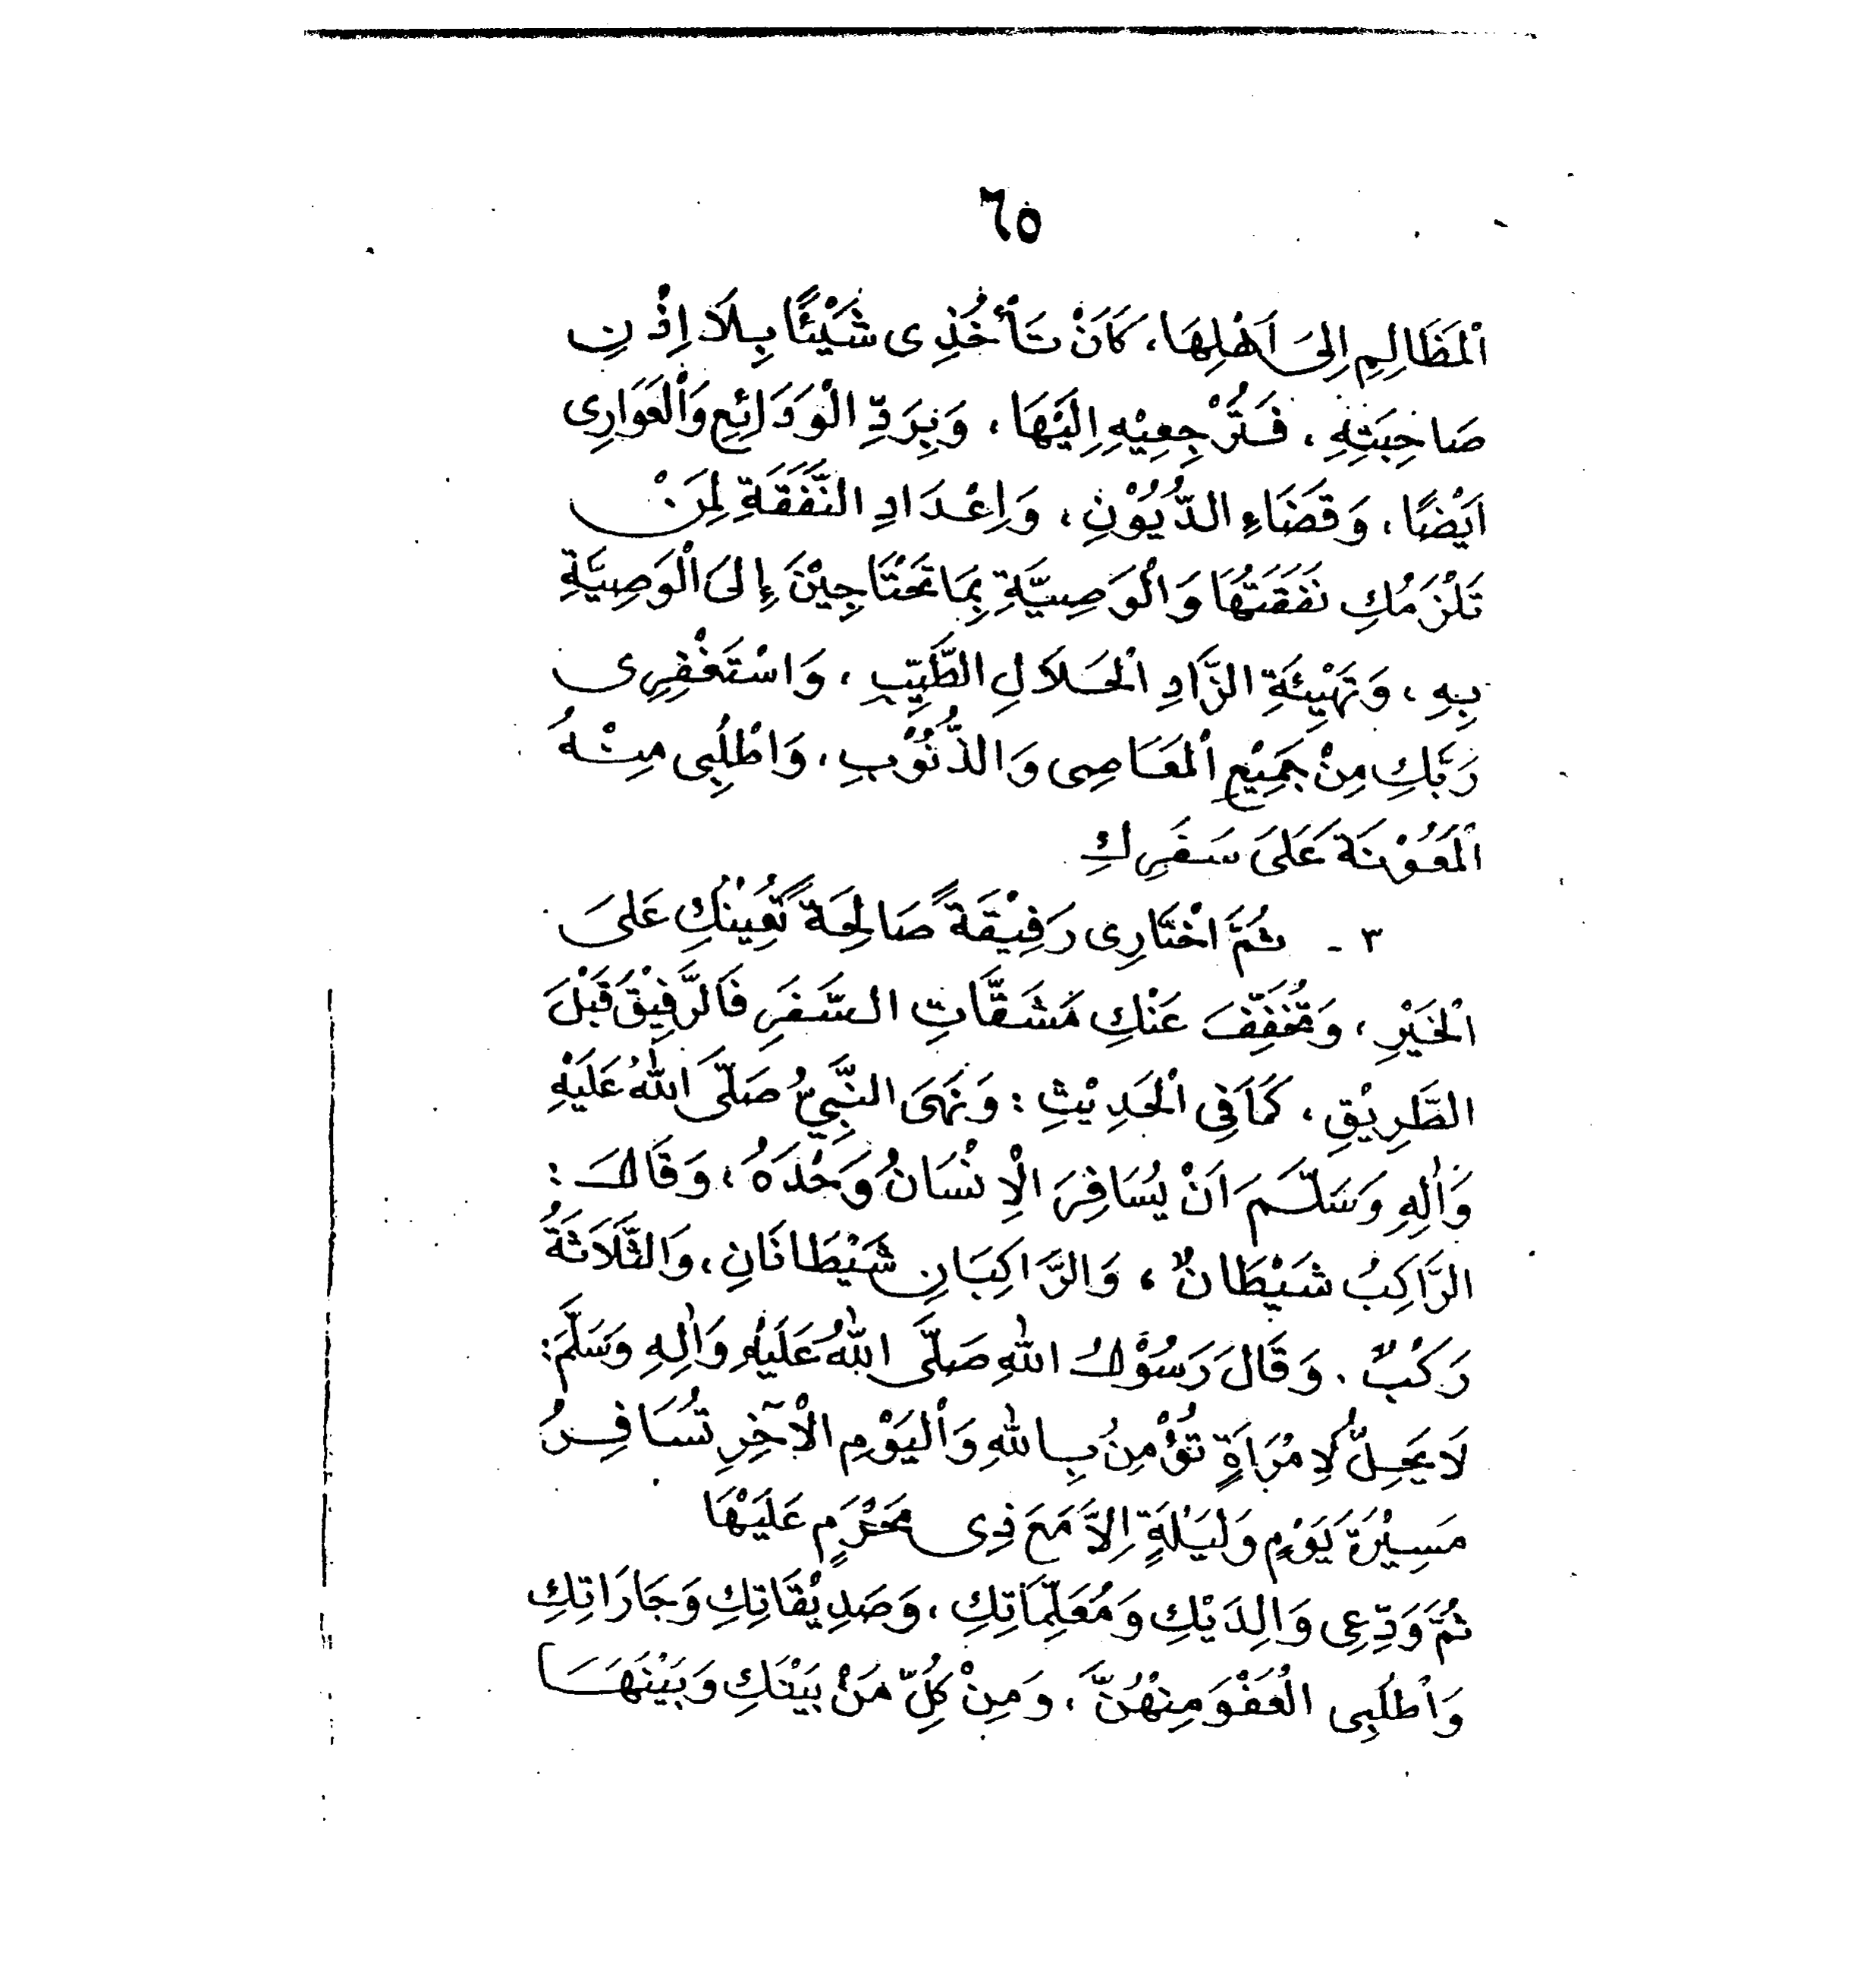 ٦٥
اَلْمَظَالِمِ اِلىَ اَهْلِهَا، كَاَنْ تَأْخُذِى شَيْئًا بِلَا اِذْنِ
صَاحِبَتِهِ، فَتُرْجِعِيْهِ اِلَيْهَا، وَبِرَدِّ الْوَدَائِعِ وَالْعَوَارِى
اَيْضًا، وَقَضَاءِ الدُّيُوْنِ، وَاِعْدَادِ النَّفَقَةِ لِمَنْ
تَلْزَمُكِ نَفَقَتُهَا وَالْوَصِيَّةِ بِمَا تَحْتَاجِيْنَ إِلىَ الْوَصِيَّةِ
بِهِ، وَتَهْيِئَةِ الزَّادِ الْحَلَالِ الطَّيِّبِ، وَاسْتَغْفِرِى
رَبَّكِ مِنْ جَمِيْعِ الْمَعَاصِى وَالذُّنُوْبِ، وَاطْلُبِى مِنْهُ
الْمَعُوْنَةَ عَلىَ سَفَرِكِ
٣ - ثُمَّ اخْتَارِى رَفِيْقَةً صَالِحَةً تُعِيْنُكِ عَلىَ
الْخَيْرِ، وَتُخَفِّفُ عَنْكِ مَشَقَّاتِ السَّفَرِ فَالرَّفِيْقُ قَبْلَ
الطَّرِيْقِ، كَمَا فِى الْحَدِيْثِ: وَنَهَى النَّبِيُّ صَلَّى اللهُ عَلَيْهِ
وَاٰلِهِ وَسَلَّمَ اَنْ يُسَافِرَ الْاِنْسَانُ وَحْدَهُ، وَقَالَ:
الرَّاكِبُ شَيْطَانٌ، وَالرَّاكِبَانِ شَيْطَانَانِ، وَالثَّلَاثَةُ
رَكْبٌ. وَقَالَ رَسُوْلُ اللهِ صَلَّى اللهُ عَلَيْهِ وَاٰلِهِ وَسَلَّمَ:
لَا يَحِلُّ لِامْرَاَةٍ تُؤْمِنُ بِاللهِ وَالْيَوْمِ الْآخِرِ تُسَافِرُ
مَسِيْرَةَ يَوْمٍ وَلَيْلَةٍ اِلَّا مَعَ ذِى مَحْرَمٍ عَلَيْهَا
ثُمَّ وَدِّعِى وَالِدَيْكِ وَمُعَلِّمَاتِكِ، وَصَدِيْقَاتِكِ وَجَارَاتِكِ
وَاطْلُبِى الْعَفْوَ مِنْهُنَّ، وَمِنْ كُلِّ مَنْ بَيْنَكِ وَبَيْنَهَا